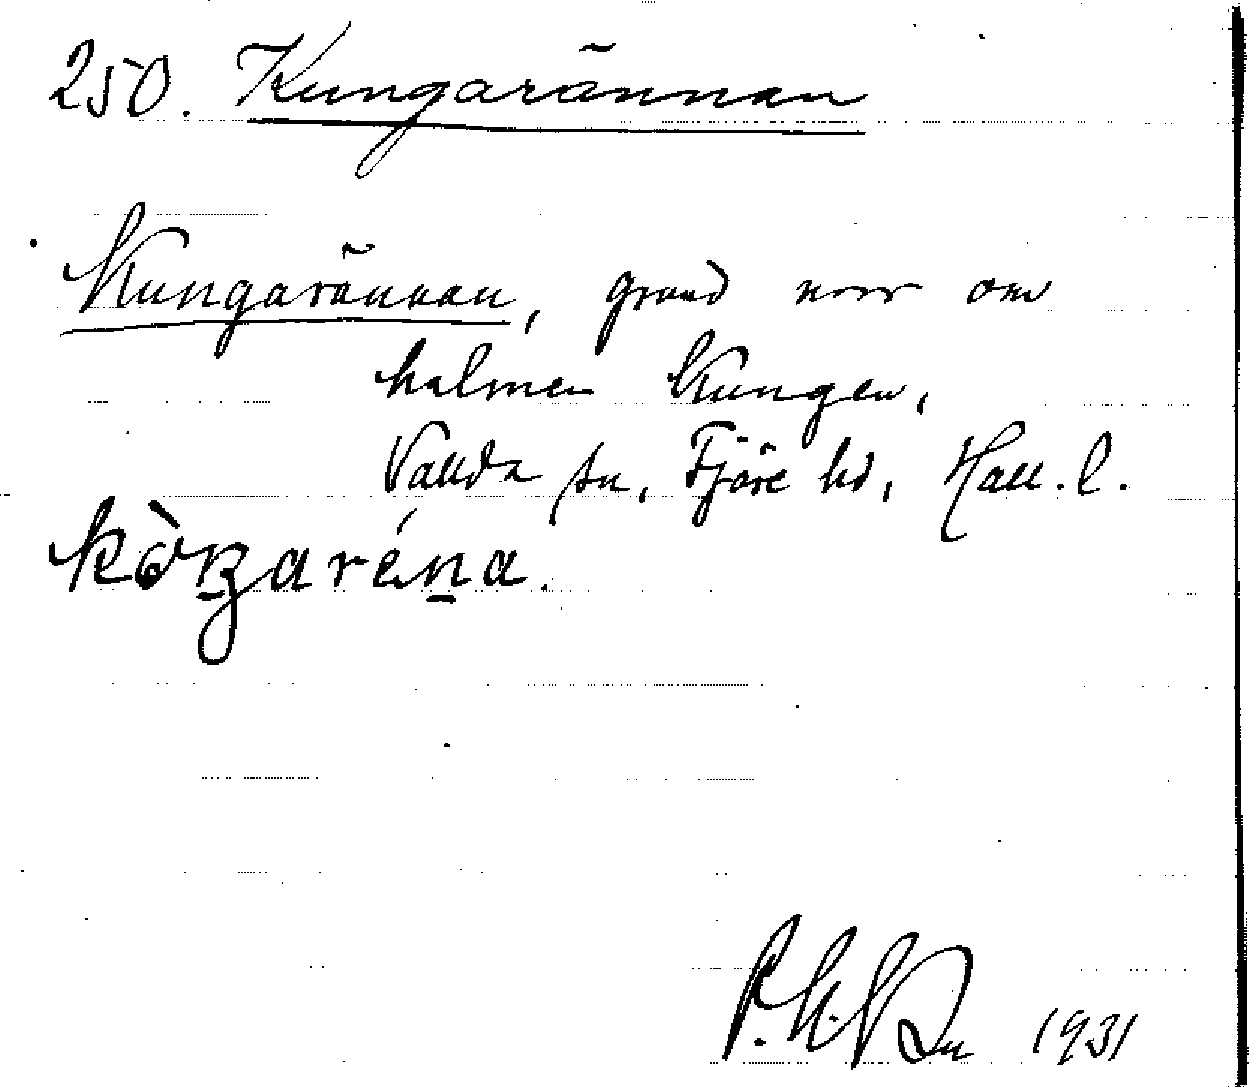 250. Kungarännan
Kungarännan, grund norr om
holmen Kungen,
Vallda sn, Fjäre hd, Hall. l.
1931